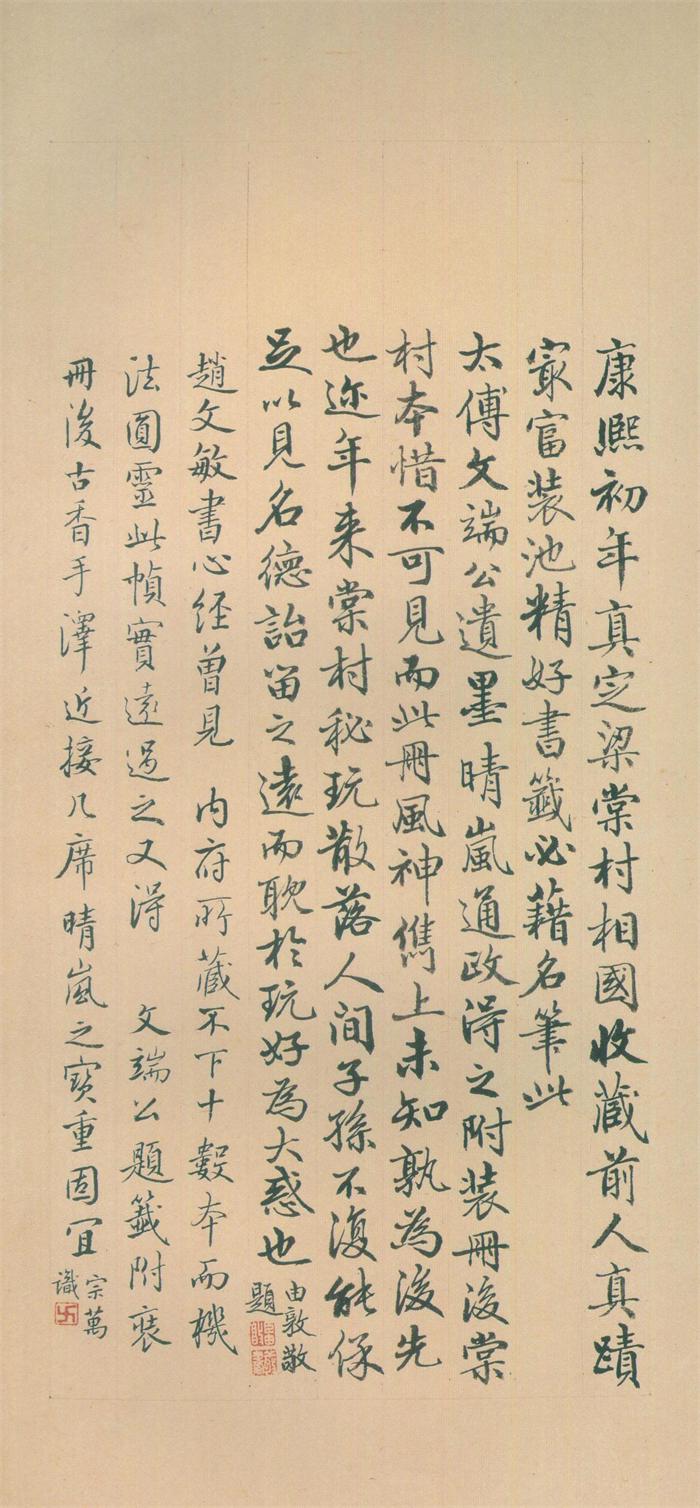 康熙初年真定梁棠村相國收藏前人真蹟
冣富装池精好書籤必藉名筆此
太傅文端公遺墨晴嵐通政得之附装冊後棠
村本惜不可見而此冊風神儁上未知孰為後先
也迩年来棠村秘玩散落人间子孫不復能保
足以見名德詒留之遠而耽於玩好為大惑也
由敦敬
題
趙文敏書心经曾見 内府所藏不下十數本而機
法圓靈此幀實遠過之又得 文端公題籤附裝
冊後古香手澤近接几席晴嵐之寶重固宜
宗萬
識